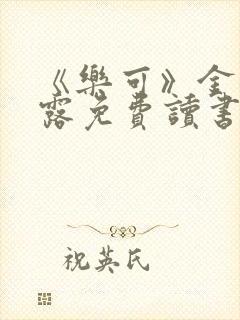 《樂可》金
露免費讀書
祝英氏